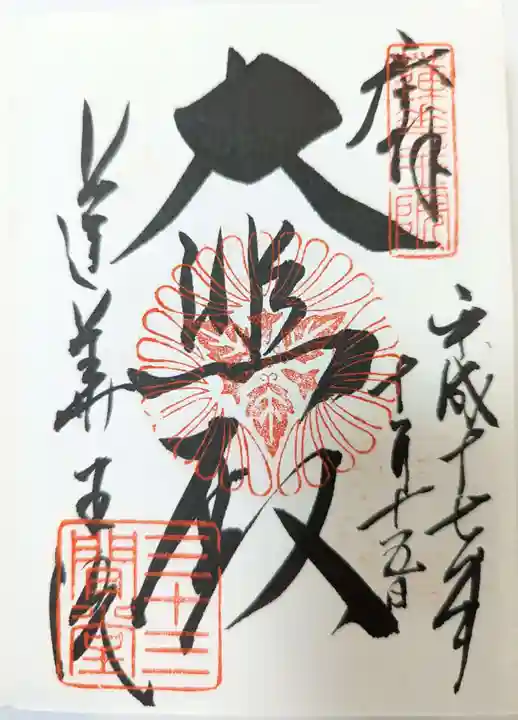 奉拝
蓮華王院
平成十七年
十月十五日
大悲殿
蓮華王院
三十三
間堂